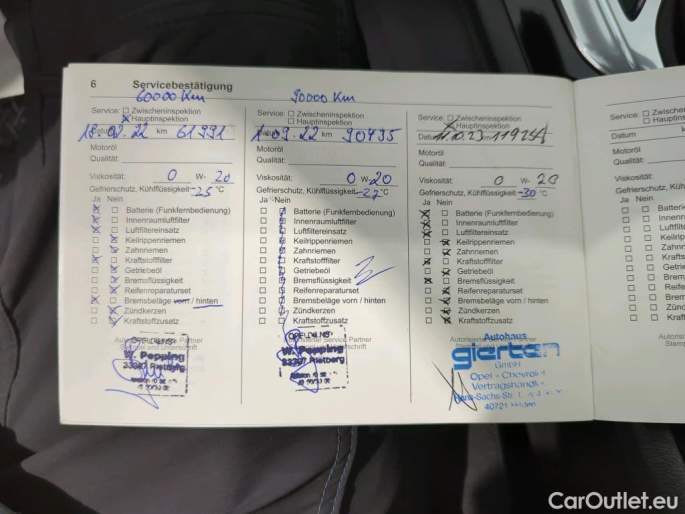 6 Servicebestätigung
60000 Km
Service: Zwischeninspektion
Hauptinspektion
Datum 18.02.22 km 61991
Motoröl
Qualität:
Viskosität: 0 W- 20
Gefrierschutz, Kühlflüssigkeit -25 °C
Ja Nein
Batterie (Funkfernbedienung)
Innenraumluftfilter
Luftfiltereinsatz
Keilrippenriemen
Zahnriemen
Kraftstofffilter
Getriebeöl
Bremsflüssigkeit
Reifenreparaturset
Bremsbeläge vorn / hinten
Zündkerzen
Kraftstoffzusatz
W. Pepping
33397 Rietberg
90000 Km
Service: Zwischeninspektion
Hauptinspektion
Datum 1.09.22 km 90435
Motoröl
Qualität:
Viskosität: 0 W- 20
Gefrierschutz, Kühlflüssigkeit -27 °C
Ja Nein
Batterie (Funkfernbedienung)
Innenraumluftfilter
Luftfiltereinsatz
Keilrippenriemen
Zahnriemen
Kraftstofffilter
Getriebeöl
Bremsflüssigkeit
Reifenreparaturset
Bremsbeläge vorn / hinten
Zündkerzen
Kraftstoffzusatz
W. Pepping
33397 Rietberg
Service: Zwischeninspektion
Hauptinspektion
Datum
Motoröl
Qualität:
Viskosität: 0 W- 20
Gefrierschutz, Kühlflüssigkeit -30 °C
Ja Nein
Batterie (Funkfernbedienung)
Innenraumluftfilter
Luftfiltereinsatz
Keilrippenriemen
Zahnriemen
Kraftstofffilter
Getriebeöl
Bremsflüssigkeit
Reifenreparaturset
Bremsbeläge vorn / hinten
Zündkerzen
Kraftstoffzusatz
Autohaus
gierten
GmbH
Opel - Chevrolet
Vertragshändler
Hans-Sachs-Str.
40721 Hilden
Service: Zwischen
Hauptinsp
Datum
Motoröl
Qualität:
Viskosität:
Gefrierschutz, Kühlflüssig
Ja Nein
Batterie
Innenra
Luftfilter
Keilripp
Zahnrie
Kraftsto
Getrieb
Bremsf
Reifenr
Bremsb
Zündke
Kraftsto
CarOutlet.eu